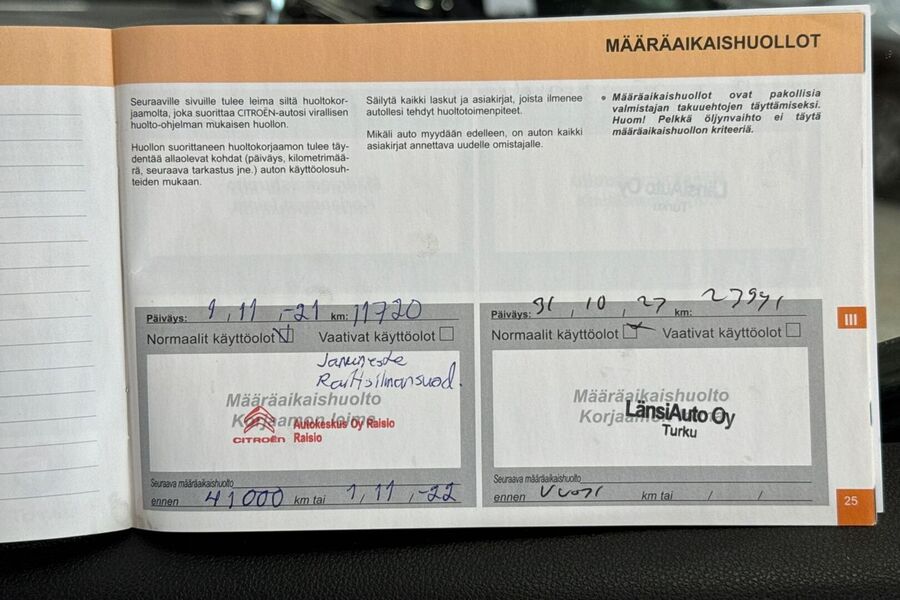 MÄÄRÄAIKAISHUOLLOT
Seuraaville sivuille tulee leima siltä huoltokor-
jaamolta, joka suorittaa CITROËN-autosi virallisen
huolto-ohjelman mukaisen huollon.
Huollon suorittaneen huoltokorjaamon tulee täy-
dentää allaolevat kohdat (päiväys, kilometrimää-
rä, seuraava tarkastus jne.) auton käyttöolosuh-
teiden mukaan.
Säilytä kaikki laskut ja asiakirjat, joista ilmenee
autollesi tehdyt huoltotoimenpiteet.
Mikäli auto myydään edelleen, on auton kaikki
asiakirjat annettava uudelle omistajalle.
• Määräaikaishuollot ovat pakollisia
valmistajan takuuehtojen täyttämiseksi.
Huom! Pelkkä öljynvaihto ei täytä
määräaikaishuollon kriteeriä.
Päiväys: 1, 11, -21 km: 11720
Normaalit käyttöolot Vaativat käyttöolot
Jarrineste
Raitisilmansuod.
Määräaikaishuolto
Korjaamon leima
CITROËN
Autokeskus Oy Raisio
Raisio
Seuraava määräaikaishuolto
ennen 41000 km tai 1, 11, -22
Päiväys: 31, 10, 27 km:
Normaalit käyttöolot Vaativat käyttöolot
Määräaikaishuolto
Korjaamon leima
LänsiAuto Oy
Turku
Seuraava määräaikaishuolto
ennen vuosi km tai / /
III
25